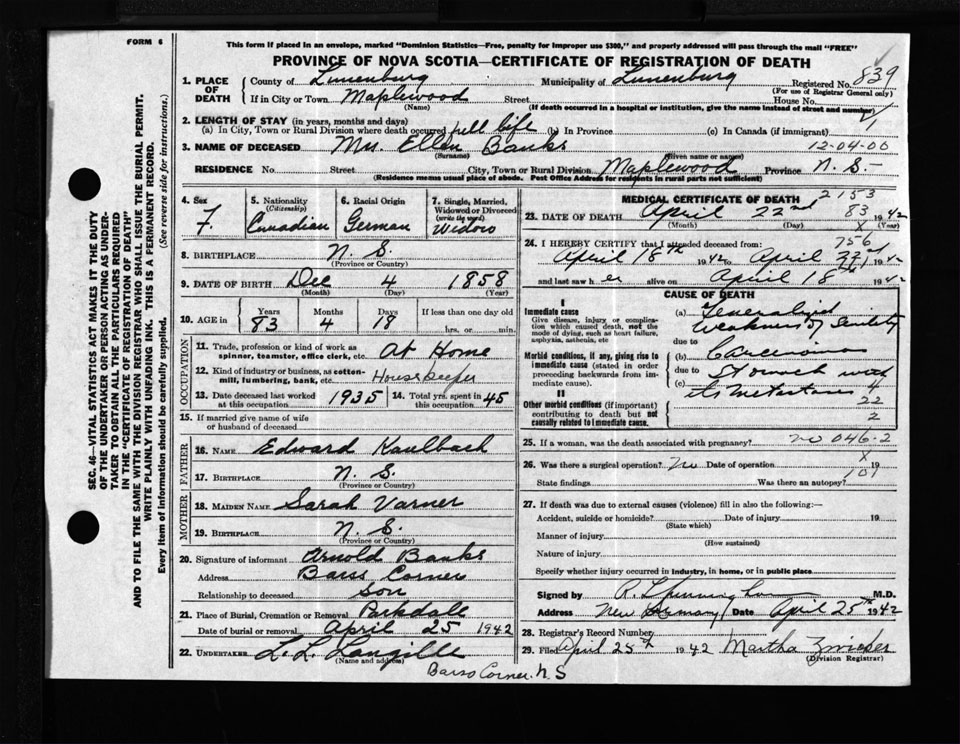 FORM 6
This form if placed in an envelope, marked "Dominion Statistics—Free, penalty for improper use $300," and properly addressed will pass through the mail "FREE"
PROVINCE OF NOVA SCOTIA—CERTIFICATE OF REGISTRATION OF DEATH
SEC. 46—VITAL STATISTICS ACT MAKES IT THE DUTY
OF THE UNDERTAKER OR PERSON ACTING AS UNDER-
TAKER TO OBTAIN ALL THE PARTICULARS REQUIRED
IN THE "CERTIFICATE OF REGISTRATION OF DEATH"
AND TO FILE THE SAME WITH THE DIVISION REGISTRAR WHO SHALL ISSUE THE BURIAL PERMIT.
WRITE PLAINLY WITH UNFADING INK. THIS IS A PERMANENT RECORD.
Every item of information should be carefully supplied. (See reverse side for instructions.)
1. PLACE OF DEATH
County of Lunenburg Municipality of Lunenburg Registered No. 839
(For use of Registrar General only)
If in City or Town Maplewood Street House No.
(Name) (If death occurred in a hospital or institution, give the name instead of street and number)
2. LENGTH OF STAY (in years, months and days)
(a) In City, Town or Rural Division where death occurred full life (b) In Province (c) In Canada (if immigrant)
3. NAME OF DECEASED Mrs. Ellen Banks 12-04-00
(Surname) (Given name or names)
RESIDENCE No. Street City, Town or Rural Division Maplewood Province N. S.
(Residence means usual place of abode. Post Office Address for residents in rural parts not sufficient)
4. Sex F.
5. Nationality (Citizenship) Canadian
6. Racial Origin German
7. Single, Married, Widowed or Divorced (write the word) Widow
8. BIRTHPLACE N. S.
(Province or Country)
9. DATE OF BIRTH Dec 4 1858
(Month) (Day) (Year)
10. AGE in Years 83 Months 4 Days 18 If less than one day old hrs. or min.
OCCUPATION
11. Trade, profession or kind of work as spinner, teamster, office clerk, etc. At Home
12. Kind of industry or business, as cotton-mill, lumbering, bank, etc. Housekeeper
13. Date deceased last worked at this occupation 1935 14. Total yrs. spent in this occupation 45
15. If married give name of wife or husband of deceased
FATHER
16. NAME Edward Kaulbach
17. BIRTHPLACE N. S.
(Province or Country)
MOTHER
18. MAIDEN NAME Sarah Varner
19. BIRTHPLACE N. S.
(Province or Country)
20. Signature of informant Arnold Banks
Address Barss Corner
Relationship to deceased Son
21. Place of Burial, Cremation or Removal Parkdale
Date of burial or removal April 25 1942
22. UNDERTAKER L. L. Langille
(Name and address)
Barss Corner. N S
MEDICAL CERTIFICATE OF DEATH
2153
23. DATE OF DEATH April 22nd 83 1942
(Month) (Day) X (Year)
24. I HEREBY CERTIFY that I attended deceased from: 756
April 18th 1942 to April 22nd 1942
and last saw her alive on April 18th 1942
CAUSE OF DEATH
I
Immediate cause
Give disease, injury or complication which caused death, not the mode of dying, such as heart failure, asphyxia, asthenia, etc
(a) Generalized weakness of Senility
due to
Morbid conditions, if any, giving rise to immediate cause (stated in order proceeding backwards from immediate cause).
(b) Carcinoma
due to Stomach with
(c) its metastasis 4
II
22
Other morbid conditions (if important) contributing to death but not causally related to immediate cause.
2
25. If a woman, was the death associated with pregnancy? no 046-2
X
26. Was there a surgical operation? No Date of operation 19
101
State findings Was there an autopsy?
27. If death was due to external causes (violence) fill in also the following:—
Accident, suicide or homicide? Date of injury 19
(State which)
Manner of injury
(How sustained)
Nature of injury
Specify whether injury occurred in industry, in home, or in public place
Signed by M.D.
Address New Germany Date April 25th 1942
28. Registrar's Record Number
29. Filed April 25th 1942 Martha Zwicker
(Division Registrar)